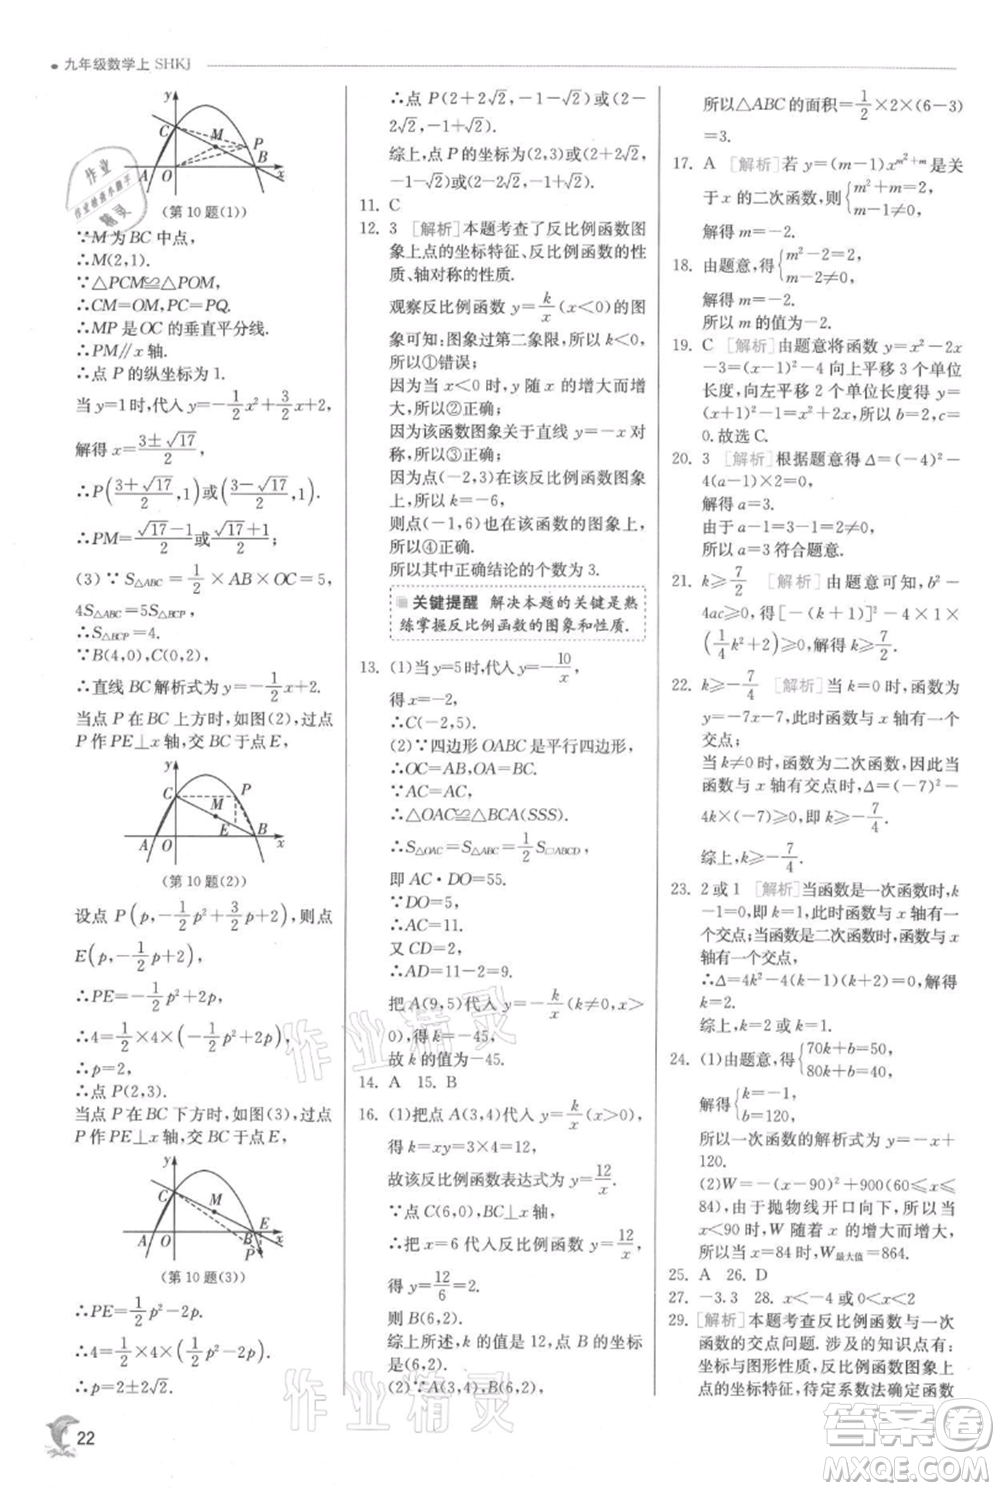 九年级数学上 SHKJ
y
C
M
P
A
O
B
x
(第 10 题(1))
∵M 为 BC 中点,
∴M(2,1).
∵△PCM≌△POM,
∴CM=OM,PC=PQ.
∴MP 是 OC 的垂直平分线.
∴PM∥x 轴.
∴点 P 的纵坐标为 1.
当 y=1 时,代入 y=-1/2x²+3/2x+2,
解得 x=(3±√17)/2,
∴P((3+√17)/2,1)或((3-√17)/2,1)
∴PM=(√17-1)/2或(√17+1)/2;
(3)∵S△ABC=1/2×AB×OC=5,
4S△ABC=5S△BCP
∴S△BCP=4.
∵B(4,0),C(0,2)
∴直线 BC 解析式为 y=-1/2x+2.
当点 P 在 BC 上方时,如图(2),过点
P 作 PE⊥x 轴,交 BC 于点 E,
y
C
P
M
E
A
O
B
x
(第 10 题(2))
设点 P(p,-1/2p²+3/2p+2),则点
E(p,-1/2p+2),
∴PE=-1/2p²+2p.
∴4=1/2×4×(-1/2p²+2p)
∴p=2,
∴点 P(2,3).
当点 P 在 BC 下方时,如图(3),过点
P 作 PE⊥x 轴,交 BC 于点 E,
y
C
M
A
O
B
E
P
x
(第 10 题(3))
∴PE=1/2p²-2p.
∴4=1/2×4×(1/2p²-2p)
∴p=2±2√2.
22
∴点 P(2+2√2,-1-√2)或(2-
2√2,-1+√2).
综上,点 P 的坐标为(2,3)或(2+
2√2,-1-√2)或(2-2√2,
-1+√2).
11. C
12. 3 [解析]本题考查了反比例函数图
象上点的坐标特征、反比例函数的性
质、轴对称的性质.
观察反比例函数 y=k/x(x<0)的图
象可知:图象过第二象限,
所以①错误;
因为当 x<0 时,y 随 x 的增大而增
大,所以②正确;
因为该函数图象关于直线 y=-x 对
称,所以③正确;
因为点(-2,3)在该反比例函数图
象上,所以 k=-6,
则点(-1,6)也在该函数的图象上,
所以④正确.
所以其中正确结论的个数为 3.
关键提醒 解决本题的关键是熟
练掌握反比例函数的图象和性质.
13. (1)当 y=5 时,代入 y=-10/x,
得 x=-2,
∴C(-2,5).
(2)∵四边形 OABC 是平行四边形,
∴OC=AB,OA=BC.
∵AC=AC,
∴△OAC≌△BCA(SSS).
∴S△OAC=S△ABC=1/2S□ABCD.
即 AC·DO=55.
∵DO=5,
∴AC=11.
又 CD=2,
∴AD=11-2=9.
把 A(9,5)代入 y=-k/x(k≠0,x>
0),得 k=-45.
故 k 的值为-45.
14. A 15. B
16. (1)把点 A(3,4)代入 y=k/x(x>0),
得 k=xy=3×4=12,
故该反比例函数表达式为 y=12/x.
∵点 C(6,0),BC⊥x 轴,
∴把 x=6 代入反比例函数 y=12/x,
得 y=12/6=2.
则 B(6,2).
综上所述,k 的值是 12,点 B 的坐标
是(6,2).
(2)∵A(3,4),B(6,2),C(6,0),
所以△ABC 的面积=1/2×2×(6-3)
=3.
17. A [解析]若 y=(m-1)x^(m²+m)是关
于 x 的二次函数,则{m²+m=2, m-1≠0,
解得 m=-2.
18. 由题意,得{m²-2=2, m-2≠0,
解得 m=-2.
所以 m 的值为-2.
19. C [解析]由题意将函数 y=x²-2x
-3=(x-1)²-4 向上平移 3 个单位
长度,向左平移 2 个单位长度得 y=
(x+1)²-1=x²+2x,所以 b=2,c=
0.故选 C.
20. 3 [解析]根据题意得 Δ=(-4)²-
4(a-1)×2=0,
解得 a=3.
由于 a-1=3-1=2≠0,
所以 a=3 符合题意.
21. k≥7/2 [解析]由题意可知,b²-
4ac≥0,得[-(k+1)]²-4×1×
(1/4k²+2)≥0,解得 k≥7/2.
22. k≥-7/4 [解析]当 k=0 时,函数为
y=-7x-7,此时函数与 x 轴有一个
交点;
当 k≠0 时,函数为二次函数,若函数
与 x 轴有交点时,Δ=(-7)²-
4k×(-7)≥0,即 k≥-7/4.
综上,k≥-7/4.
23. 2 或 1 [解析]当函数是一次函数时,k
-1=0,即 k=1,此时函数与 x 轴有一
个交点;当函数是二次函数时,与 x
轴有一个交点,
∴Δ=4k²-4(k-1)×4=0,解得
k=2.
综上,k=2 或 k=1.
24. (1)由题意,得{70k+b=50, 80k+b=40,
解得{k=-1, b=120,
所以一次函数的解析式为 y=-x+
120.
(2)W=-(x-90)²+900(60≤x≤
84),由于抛物线开口向下,所以当
x<90 时,W 随着 x 的增大而增大,
所以当 x=84 时,W最大值=864.
25. A 26. D
27. -3.3 28. x<-4 或 0<x<2
29. [解析]本题考查反比例函数与一次
函数的交点问题. 涉及的知识点有:
坐标与图形性质,反比例函数图象上
点的坐标特征,待定系数法确定函数
作业精灵
作业精灵
答案卷
MXQE.COM